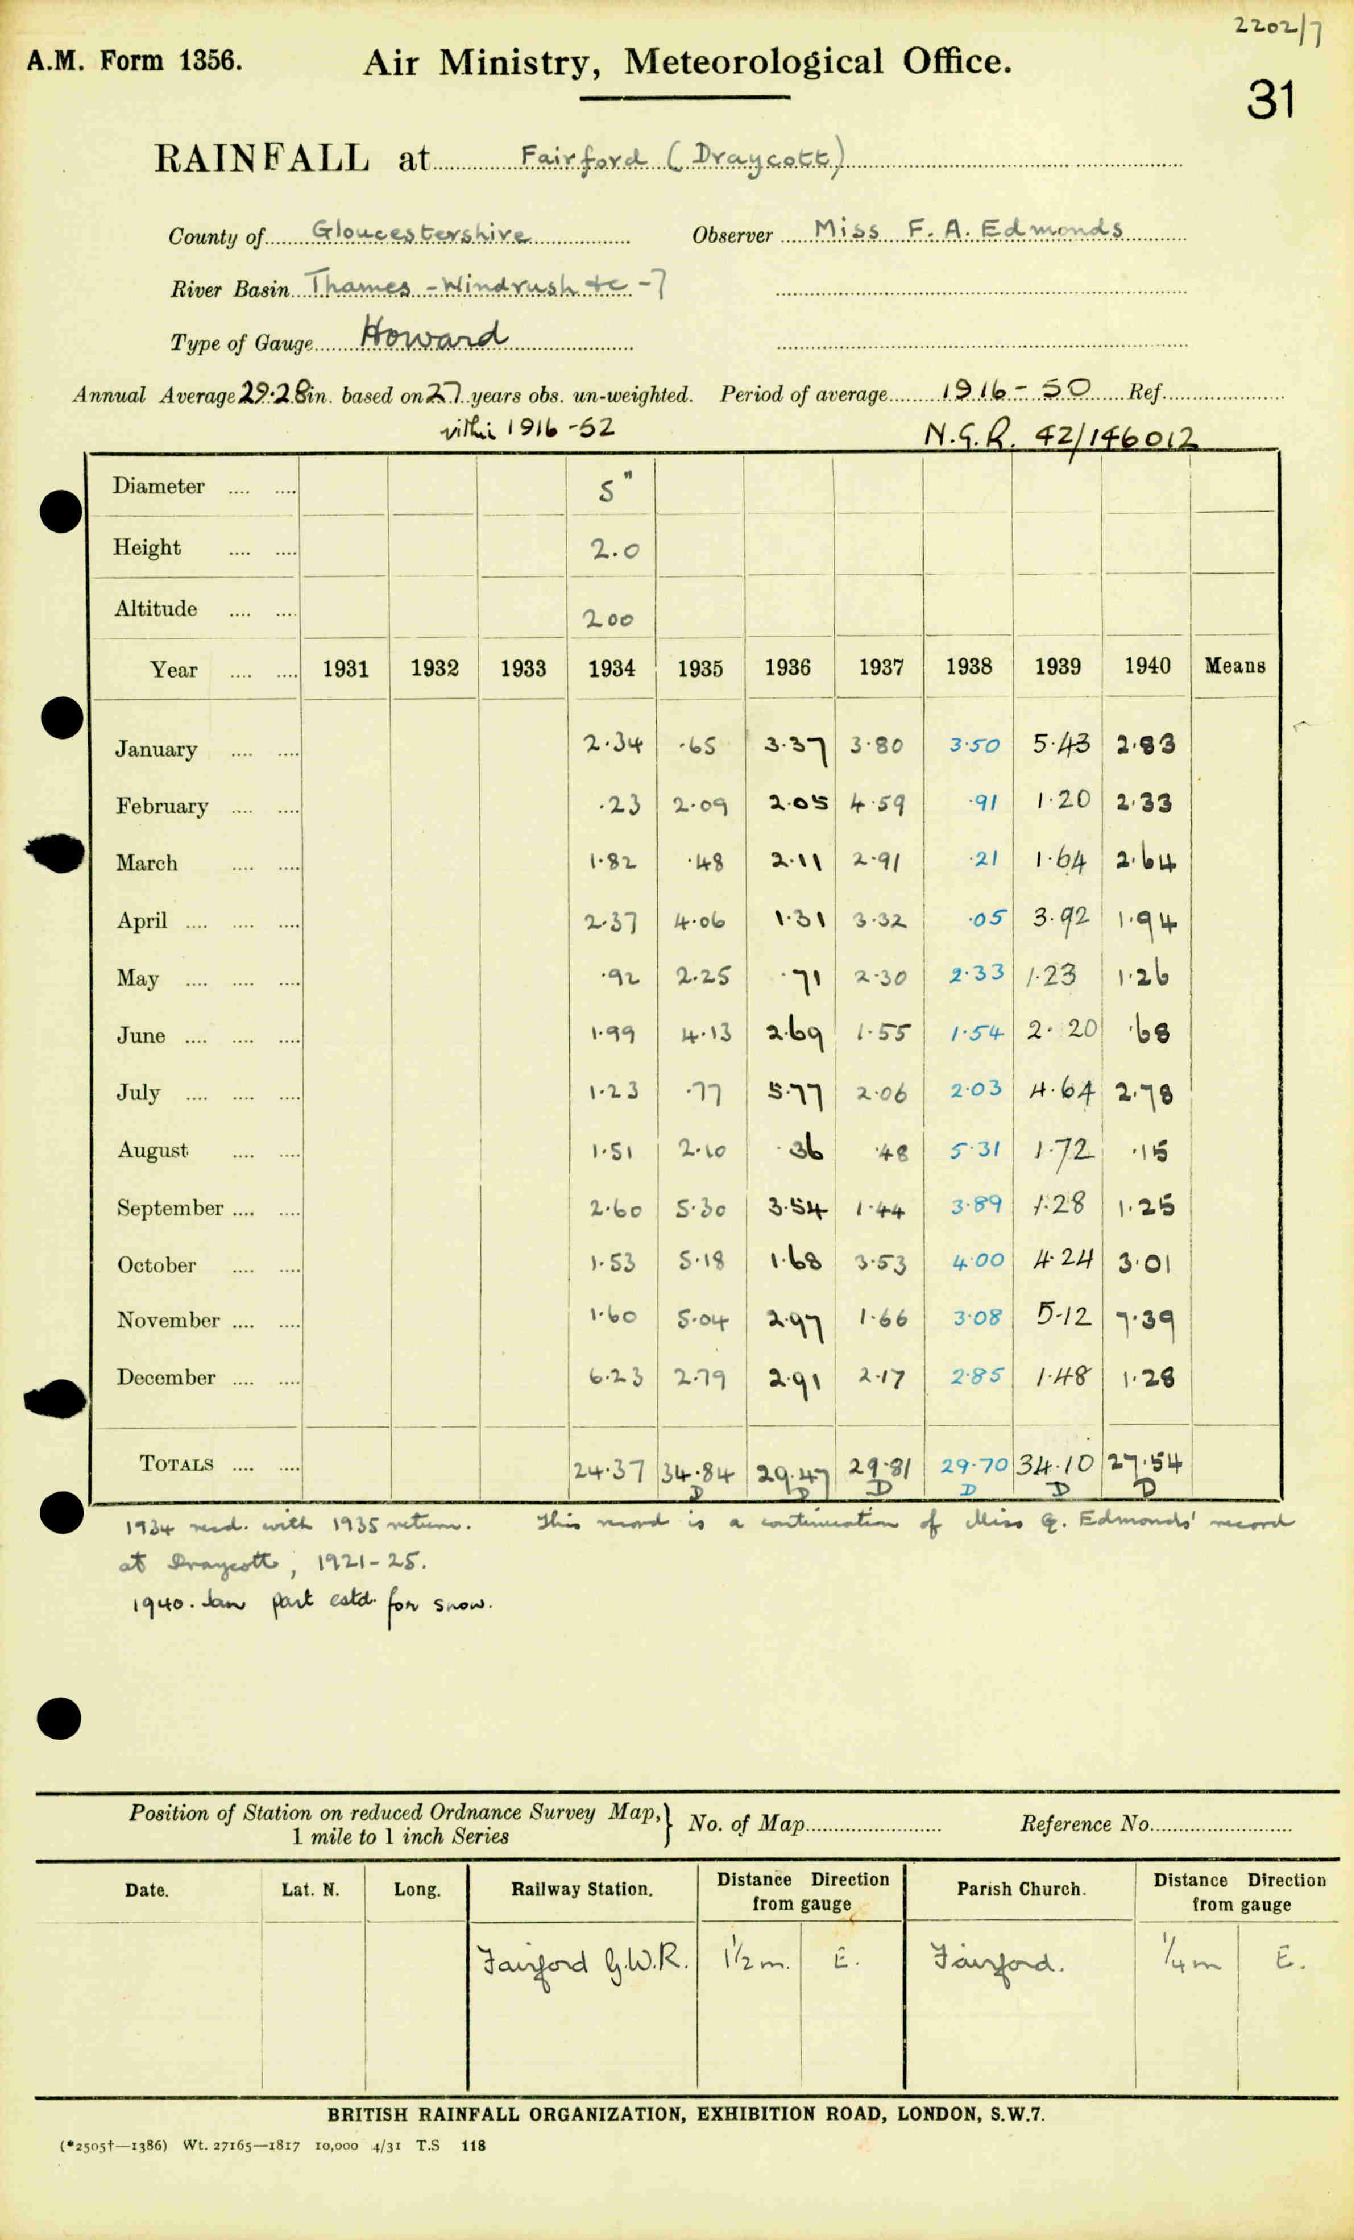 2202/7
A.M. Form 1356. Air Ministry, Meteorological Office.
31
RAINFALL at Fairford (Draycott)
County of Gloucestershire Observer Miss F. A. Edmonds
River Basin Thames - Windrush +c - 7
Type of Gauge Howard
Annual Average 29.28 in. based on 27 years obs. un-weighted. Period of average 1916 - 50 Ref.
within 1916 - 52 N.G.R. 42/146012
Diameter 5"
Height 2.0
Altitude 200
Year 1931 1932 1933 1934 1935 1936 1937 1938 1939 1940 Means
January 2.34 .65 3.37 3.80 3.50 5.43 2.83
February .23 2.09 2.05 4.59 .91 1.20 2.33
March 1.82 .48 2.11 2.91 .21 1.64 2.64
April 2.37 4.06 1.31 3.32 .05 3.92 1.94
May .92 2.25 .71 2.30 2.33 1.23 1.26
June 1.99 4.13 2.69 1.55 1.54 2.20 .68
July 1.23 .77 5.77 2.06 2.03 4.64 2.78
August 1.51 2.10 .36 .48 5.31 1.72 .15
September 2.60 5.30 3.54 1.44 3.89 1.28 1.25
October 1.53 5.18 1.68 3.53 4.00 4.24 3.01
November 1.60 5.04 2.97 1.66 3.08 5.12 7.39
December 6.23 2.79 2.91 2.17 2.85 1.48 1.28
TOTALS 24.37 34.84 29.47 29.81 29.70 34.10 27.54
D D D D D D
1934 recd. with 1935 return. This record is a continuation of Miss G. Edmonds' record
at Draycott, 1921-25.
1940. Jan part estd. for snow.
Position of Station on reduced Ordnance Survey Map, } No. of Map Reference No.
1 mile to 1 inch Series
Date. Lat. N. Long. Railway Station. Distance Direction from gauge Parish Church. Distance Direction from gauge
Fairford G.W.R. 1½ m. E. Fairford. ¼ m E.
BRITISH RAINFALL ORGANIZATION, EXHIBITION ROAD, LONDON, S.W.7.
(*2505†—1386) Wt. 27165—1817 10,000 4/31 T.S 118